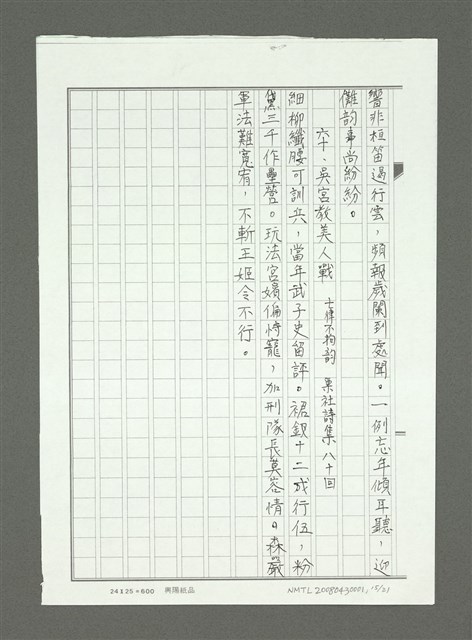 響非桓笛遏行雲，頻報歲闌到處聞。一例忘年傾耳聽，迎
儺韵事尚紛紛。
六十、吳宮教美人戰 七律不拘韵 栗社詩集八十回
細柳纖腰可訓兵，當年武子史留評。裙釵十二成行伍，粉
黛三千作壘營。玩法宮嬪偏恃寵，加刑隊長莫容情。森嚴
軍法難寬宥，不斬王姬令不行。
24×25=600 興陽紙品
NMTL20080430001, 15/21